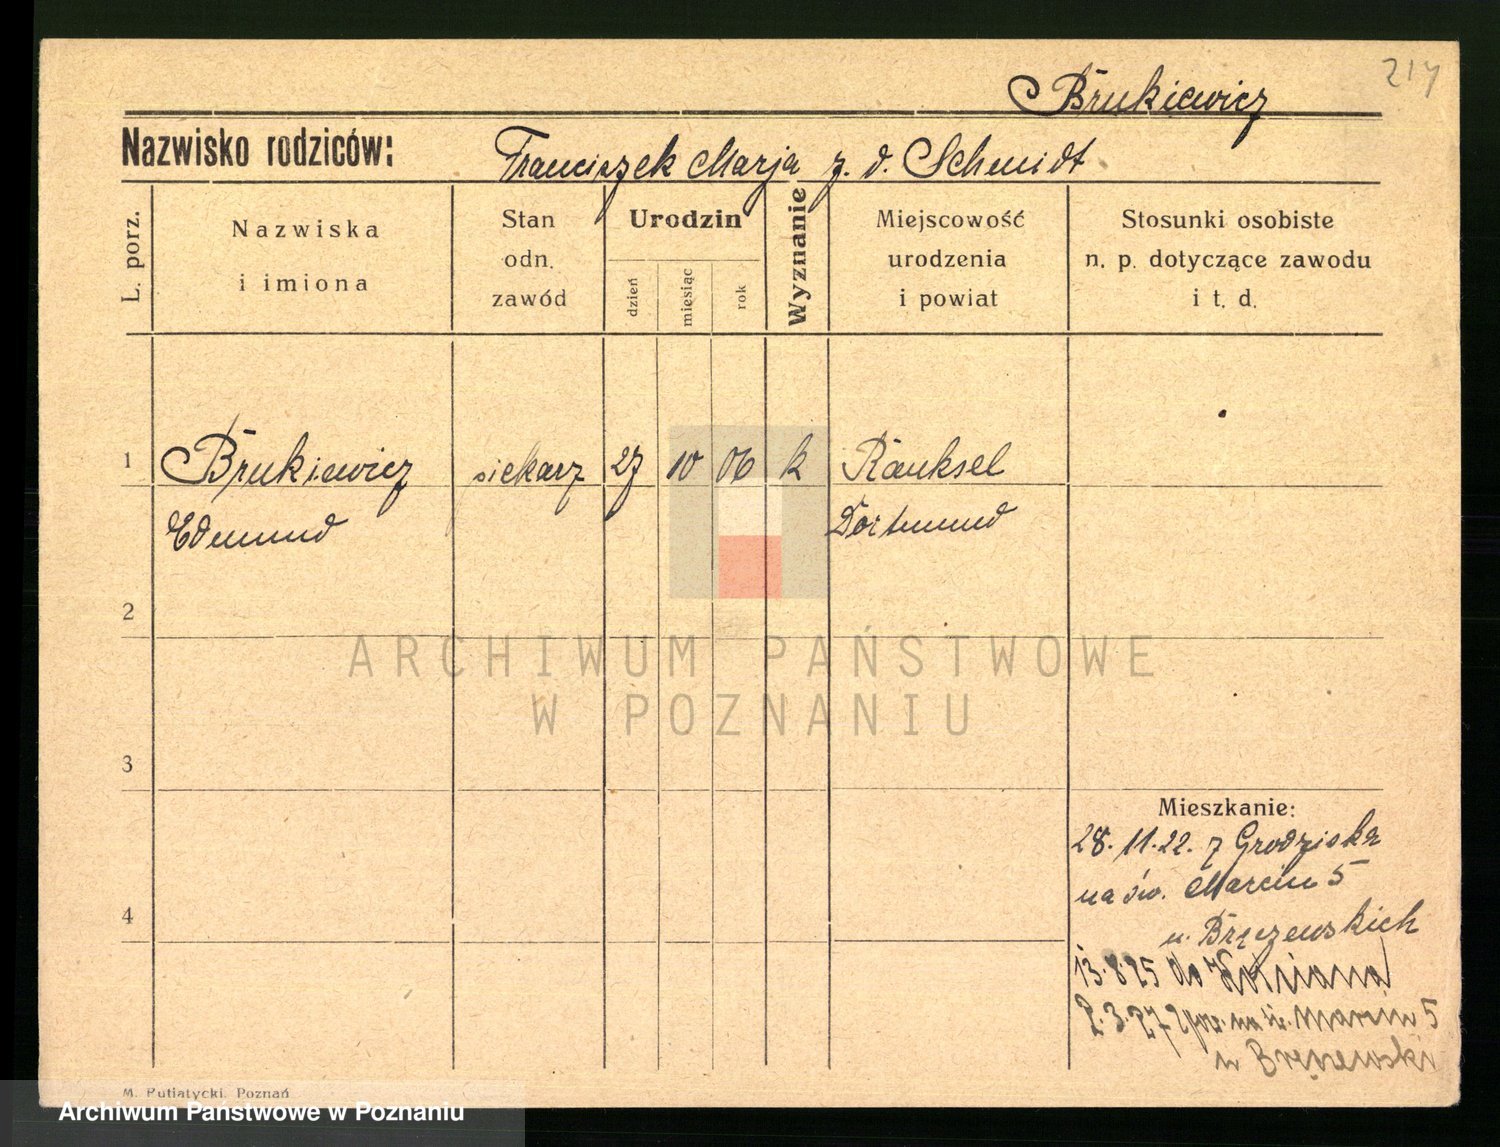 217
Brukiewicz
Nazwisko rodziców: Franciszek Marja z. d. Schmidt
L. porz.
Nazwiska i imiona
Stan odn. zawód
Urodzin
dzień
miesiąc
rok
Wyznanie
Miejscowość urodzenia i powiat
Stosunki osobiste n. p. dotyczące zawodu i t. d.
1 Brukiewicz piekarz 27 10 06 k Rauksel
Edmund Dortmund
2
3
4
Mieszkanie:
28. 11. 22. z Grodziska
na św. Marcin 5
u. Bręczewskich
13. 8. 25 do
2. 3. 27 na św. Marcin 5
u
M. Putiatycki, Poznań
ARCHIWUM PAŃSTWOWE
W POZNANIU
Archiwum Państwowe w Poznaniu